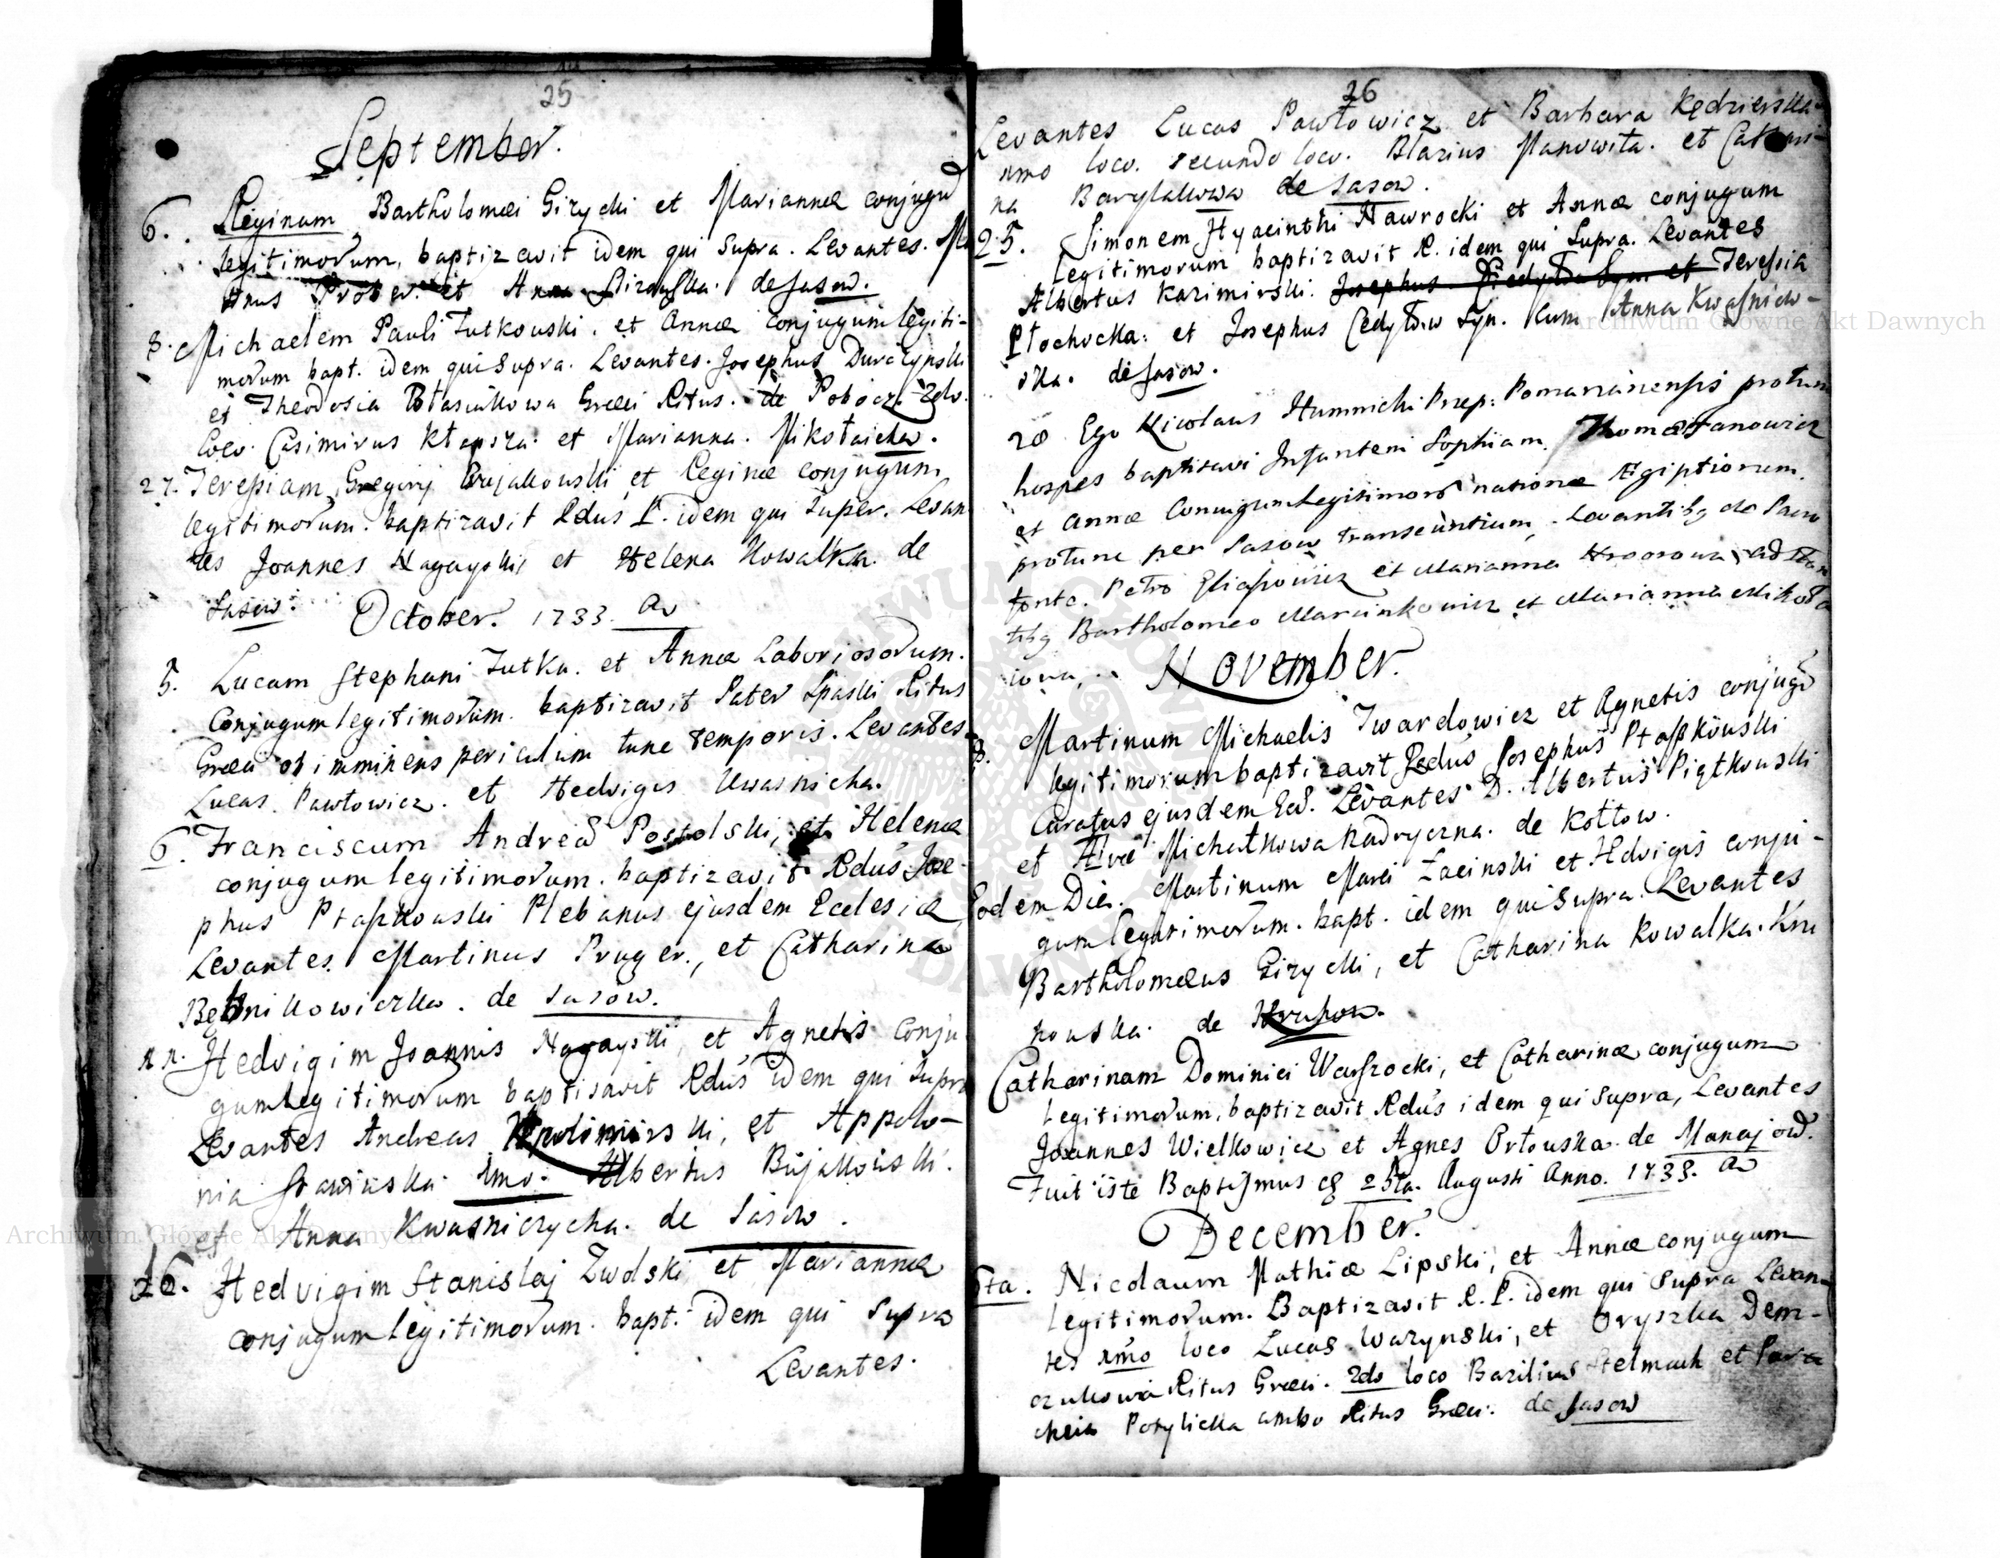 25
September.
6. Reginam Bartholomæi Girycki et Mariannæ conjugũ
legitimorum, baptizavit idem qui supra. Levantes. Ma
anus Prober. et Anna de Sasow.
8. Michaelem Pauli Tutkouski. et Annæ conjugum legiti-
morum bapt. idem qui supra. Levantes. Josephus Duraczynski
et Theodosia Græci Ritus. de 2do.
Loco. Casimirus et Marianna. Mikołaicha.
27. Teresiam Gregorij Bujakouski et Reginæ conjugum
legitimorum. baptizavit Rdus P. idem qui super. Levan
tes Joannes Nagayski et Helena Kowalka. de
Sasow.
October. 1733.
5. Lucam Stephani Tutka. et Annæ Laboriosorum.
Conjugum legitimorum. baptizavit Pater Spaski Ritus
Græci ob imminens periculum tunc temporis. Levantes
Lucas Pawłowicz. et Hedvigis Kwasnicha.
6. Franciscum Andreæ Postolski, et Helenæ
conjugum legitimorum. baptizavit Rdus Jose-
phus Ptaszkouski Plebanus ejusdem Ecclesiæ
Levantes Martinus Pruger., et Catharina
de Sasow.
Hedvigim Joannis Nagayski, et Agnetis Conju
gum legitimorum baptisavit Rdus idem qui supra
Levantes Andreas et Appolo-
nia Stawinska. Albertus Bujakouski.
et Anna Kwasniczycha. de Sasow.
26. Hedvigim Stanislaj Zwolski et Mariannæ
conjugum legitimorum. bapt. idem qui supra
Levantes.
26
Levantes Lucas Pawłowicz et Barbara Kędzierska
loco. secundo loco. Blazius Manowita. et Cathari-
na Barylakowa de Sasow.
25. Simonem Hyacinthi Nawrocki et Annæ conjugum
legitimorum baptizavit R. idem qui supra. Levantes
Albertus Kazimirski. Josephus et Teresia
Płochocka: et Josephus Cedyłow Syn. Kum Anna Kwasniew-
ska. de Sasow.
28 Ego Nicolaus Humnicki Præp: Pomarianensis protunc
hospes baptisavi Infantem Sophiam. Thomæ Janowicz
et Annæ Conjugum Legitimorũ nationæ Ægiptiorum.
protunc per Sasow transeuntium, Levantibg de Sacro
fonte. Petro Eliasowicz et Marianna ad stan
tibg Bartholomeo Marcinkowicz et Marianna Mikoła
iowa,
November.
8. Martinum Michaelis Twardowicz et Agnetis conjugũ
legitimorum baptizavit Rdus Josephus Ptaszkouski
Curatus ejusdem Ecc. Levantes D. Albertus Piątkouski
et Michałkowa Kadryczna. de Kołtow.
Eodem Die. Martinum Marci Zacinski et Hedvigis conju-
gum legitimorum. bapt. idem qui supra. Levantes
Bartholomæus Girycki, et Catharina Kowalka. Kru
kouska. de Krukow.
Catharinam Dominici Warszocki, et Catharinæ conjugum
legitimorum, baptizavit Rdus idem qui supra, Levantes
Joannes Wielkowicz et Agnes Orłouska. de Manajow.
Fuit iste Baptismus 25ta. Augusti Anno. 1733.
December.
6ta. Nicolaum Mathiæ Lipski, et Annæ conjugum
legitimorum. Baptizavit R. P. idem qui supra Levan-
tes 1mo loco Lucas Wazynski, et Oryszka Dem-
czukowa Ritus Græci. 2do loco Bazilius Stelmach et Para
cheia Potylicka ambo Ritus Græci. de Sasow